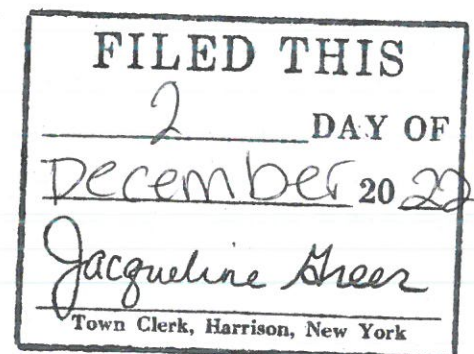 FILED THIS
2 DAY OF
December 20 22
Jacqueline Greer
Town Clerk, Harrison, New York